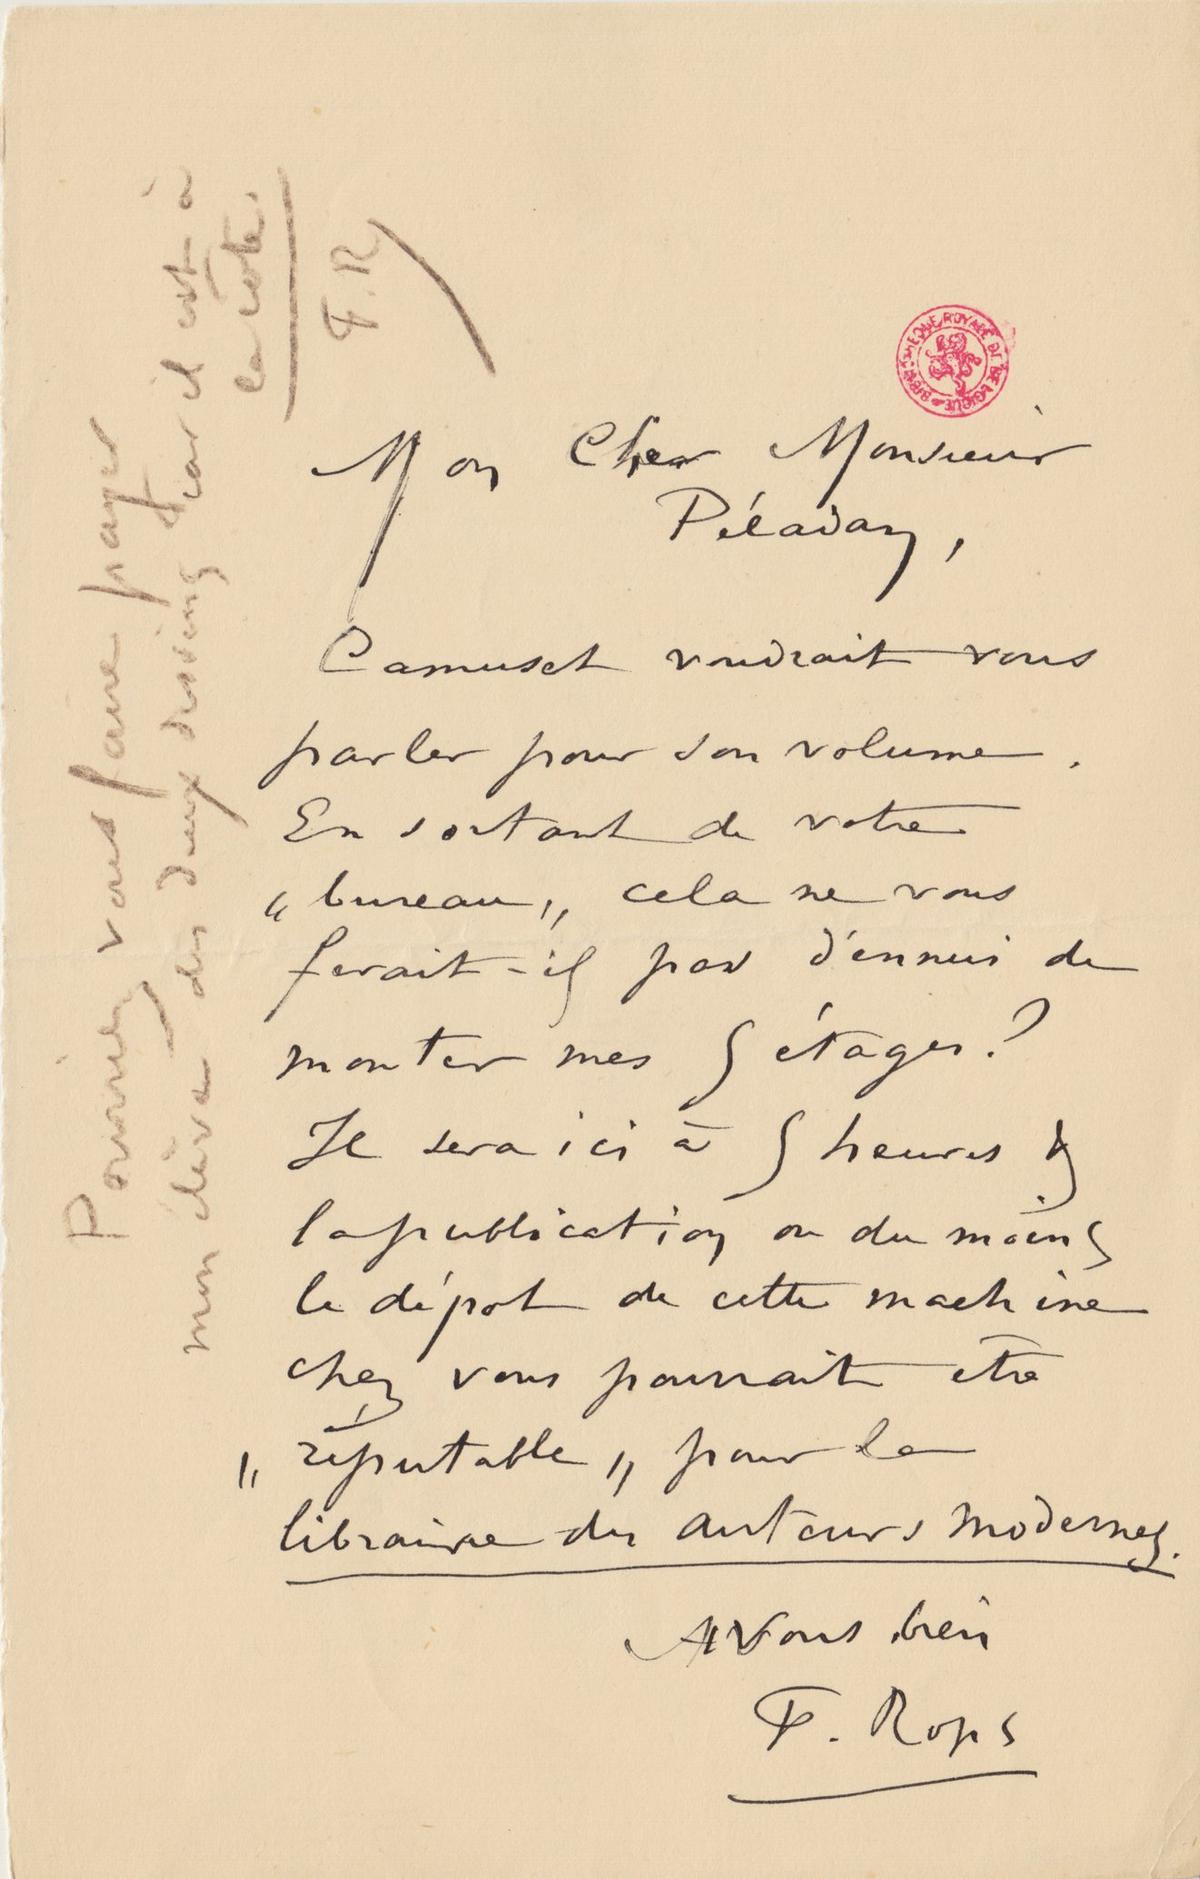 Mon Cher Monsieur
Péladan,
Camuset voudrait vous
parler pour son volume.
En sortant de votre
„bureau„ cela ne vous
ferait-il pas d'ennui de
monter mes 5 étages?
Il sera ici à 5 heures &
la publication ou du moins
le dépot de cette machine
chez vous pourrait etre
„réputable„ pour la
librairie des auteurs modernes.
A Vous bien
F. Rops
Pouvriez vous faire payer
mon élève des deux dessins car il est à
la côte.
F.R
BIBLIOTHEQUE ROYALE DE BELGIQUE